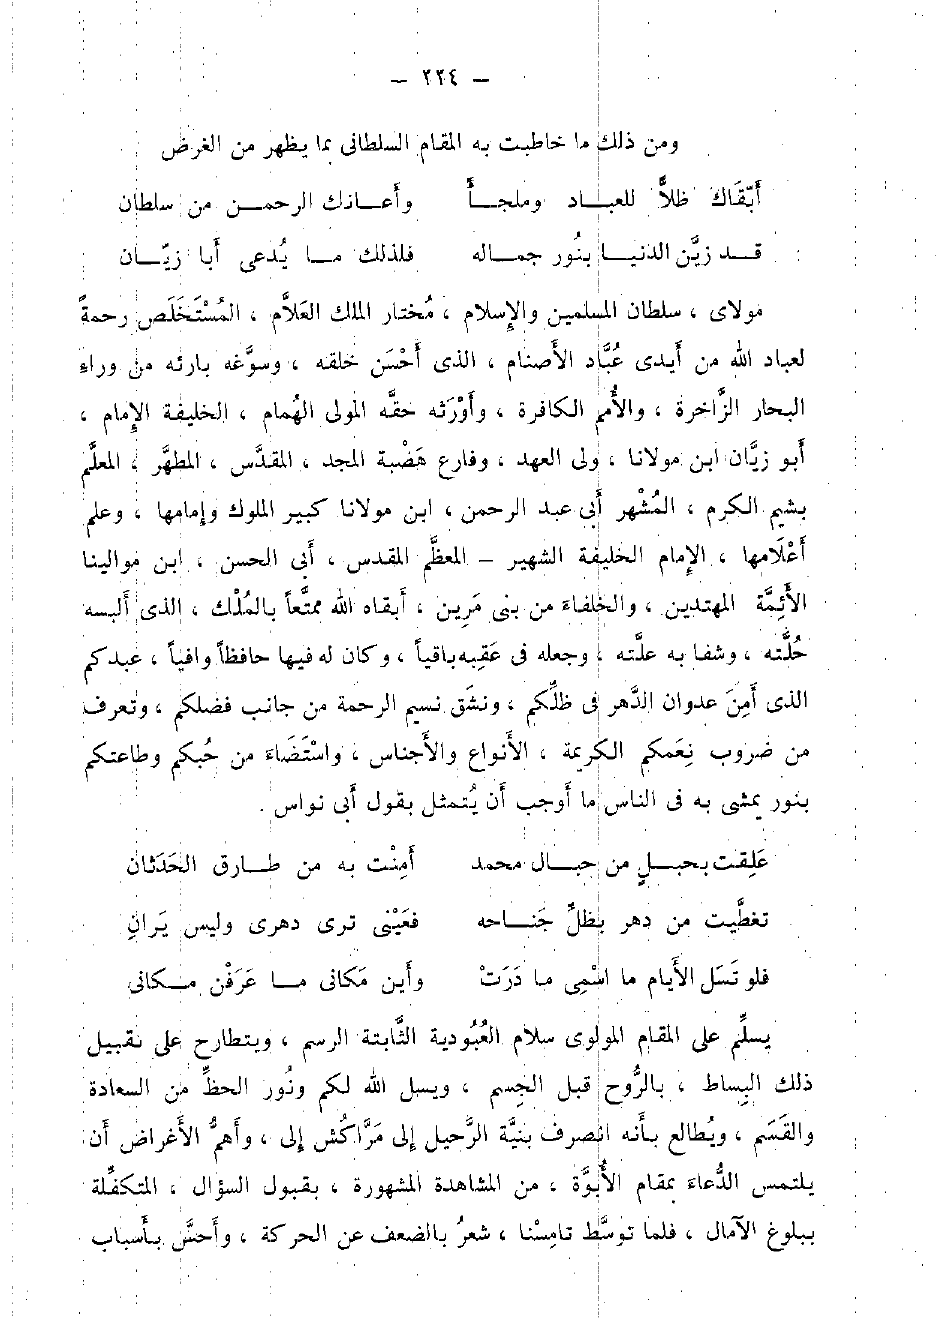 — ٢٢٤ —
ومن ذلك ما خاطبت به المقام السلطانى بما يظهر من الغرض
أبْقَاك ظلاًّ للعبــاد وملجــأً وأعــانك الرحمــن من سلطان
قــد زيَّن الدنيــا بنُور جمـاله فلذلك مــا يُدعى أبا زيّــان
مولاى ، سلطان المسلمين والإسلام ، مُختار الملك العَلاَّم ، المُسْتَخَلَص رحمةً
لعباد الله من أيدى عُبَّاد الأصنام ، الذى أحْسَن خلقه ، وسوَّغه بارئه من وراء
البحار الزَّاخرة ، والأُمم الكافرة ، وأوْرثه حقَّه المولى الهُمام ، الخليفة الإمام ،
أبو زيَّان ابن مولانا ، ولى العهد ، وفارع هَضْبة المجد ، المقدَّس ، المطهَّر ، المعلَّم
بشيم الكرم ، المُشْهر أبى عبد الرحمن ، ابن مولانا كبير الملوك وإمامها ، وعلم
أعْلَامها ، الإمام الخليفة الشهير – المعظَّم المقدس ، أبى الحسن ، ابن موالينا
الأئِمَّة المهتدين ، والخلفاء من بنى مَرِين ، أبقاه الله ممتَّعاً بالمُلْك ، الذى ألبسه
حُلَّته ، وشفا به علَّته ، وجعله فى عَقِبه باقياً ، وكان له فيها حافظاً وافياً ، عبدكم
الذى أمِنَ عدوان الدَّهر فى ظلِّكم ، ونشَق نسيم الرحمة من جانب فضلكم ، وتعرف
من ضروب نِعَمكم الكريمة ، الأنواع والأجناس ، واسْتَضَاء من حُبكم وطاعتكم
بنور يمشى به فى الناس ما أوجب أن يُتمثل بقول أبى نواس .
عَلِقت بحبــلٍ من حبــال محمد أمِنْت به من طــارق الحَدَثان
تغطَّيت من دهر بظلِّ جَنــاحه فعَيْنى ترى دهرى وليس يَرانِ
فلو تَسَل الأيام ما اسْمِى ما دَرَتْ وأين مَكانى مــا عَرَفْن مـكانى
يسلِّم على المقام المولوى سلام العُبُودية الثَّابتة الرسم ، ويتطارح على تقبيل
ذلك البِساط ، بالرُّوح قبل الجِسم ، ويسل الله لكم ونُور الحظِّ من السعادة
والقَسَم ، ويُطالع بأنه انصرف بنيَّة الرَّحيل إلى مَرَّاكُش إلى ، وأهمُّ الأغراض أن
يلتمس الدُّعاء بمقام الأُبوَّة ، من المشاهدة المشهورة ، بقبول السؤال ، المتكفِّلة
ببلوغ الآمال ، فلما توسَّط تامِسْنا ، شعرُ بالضعف عن الحركة ، وأحسَّ بأسباب